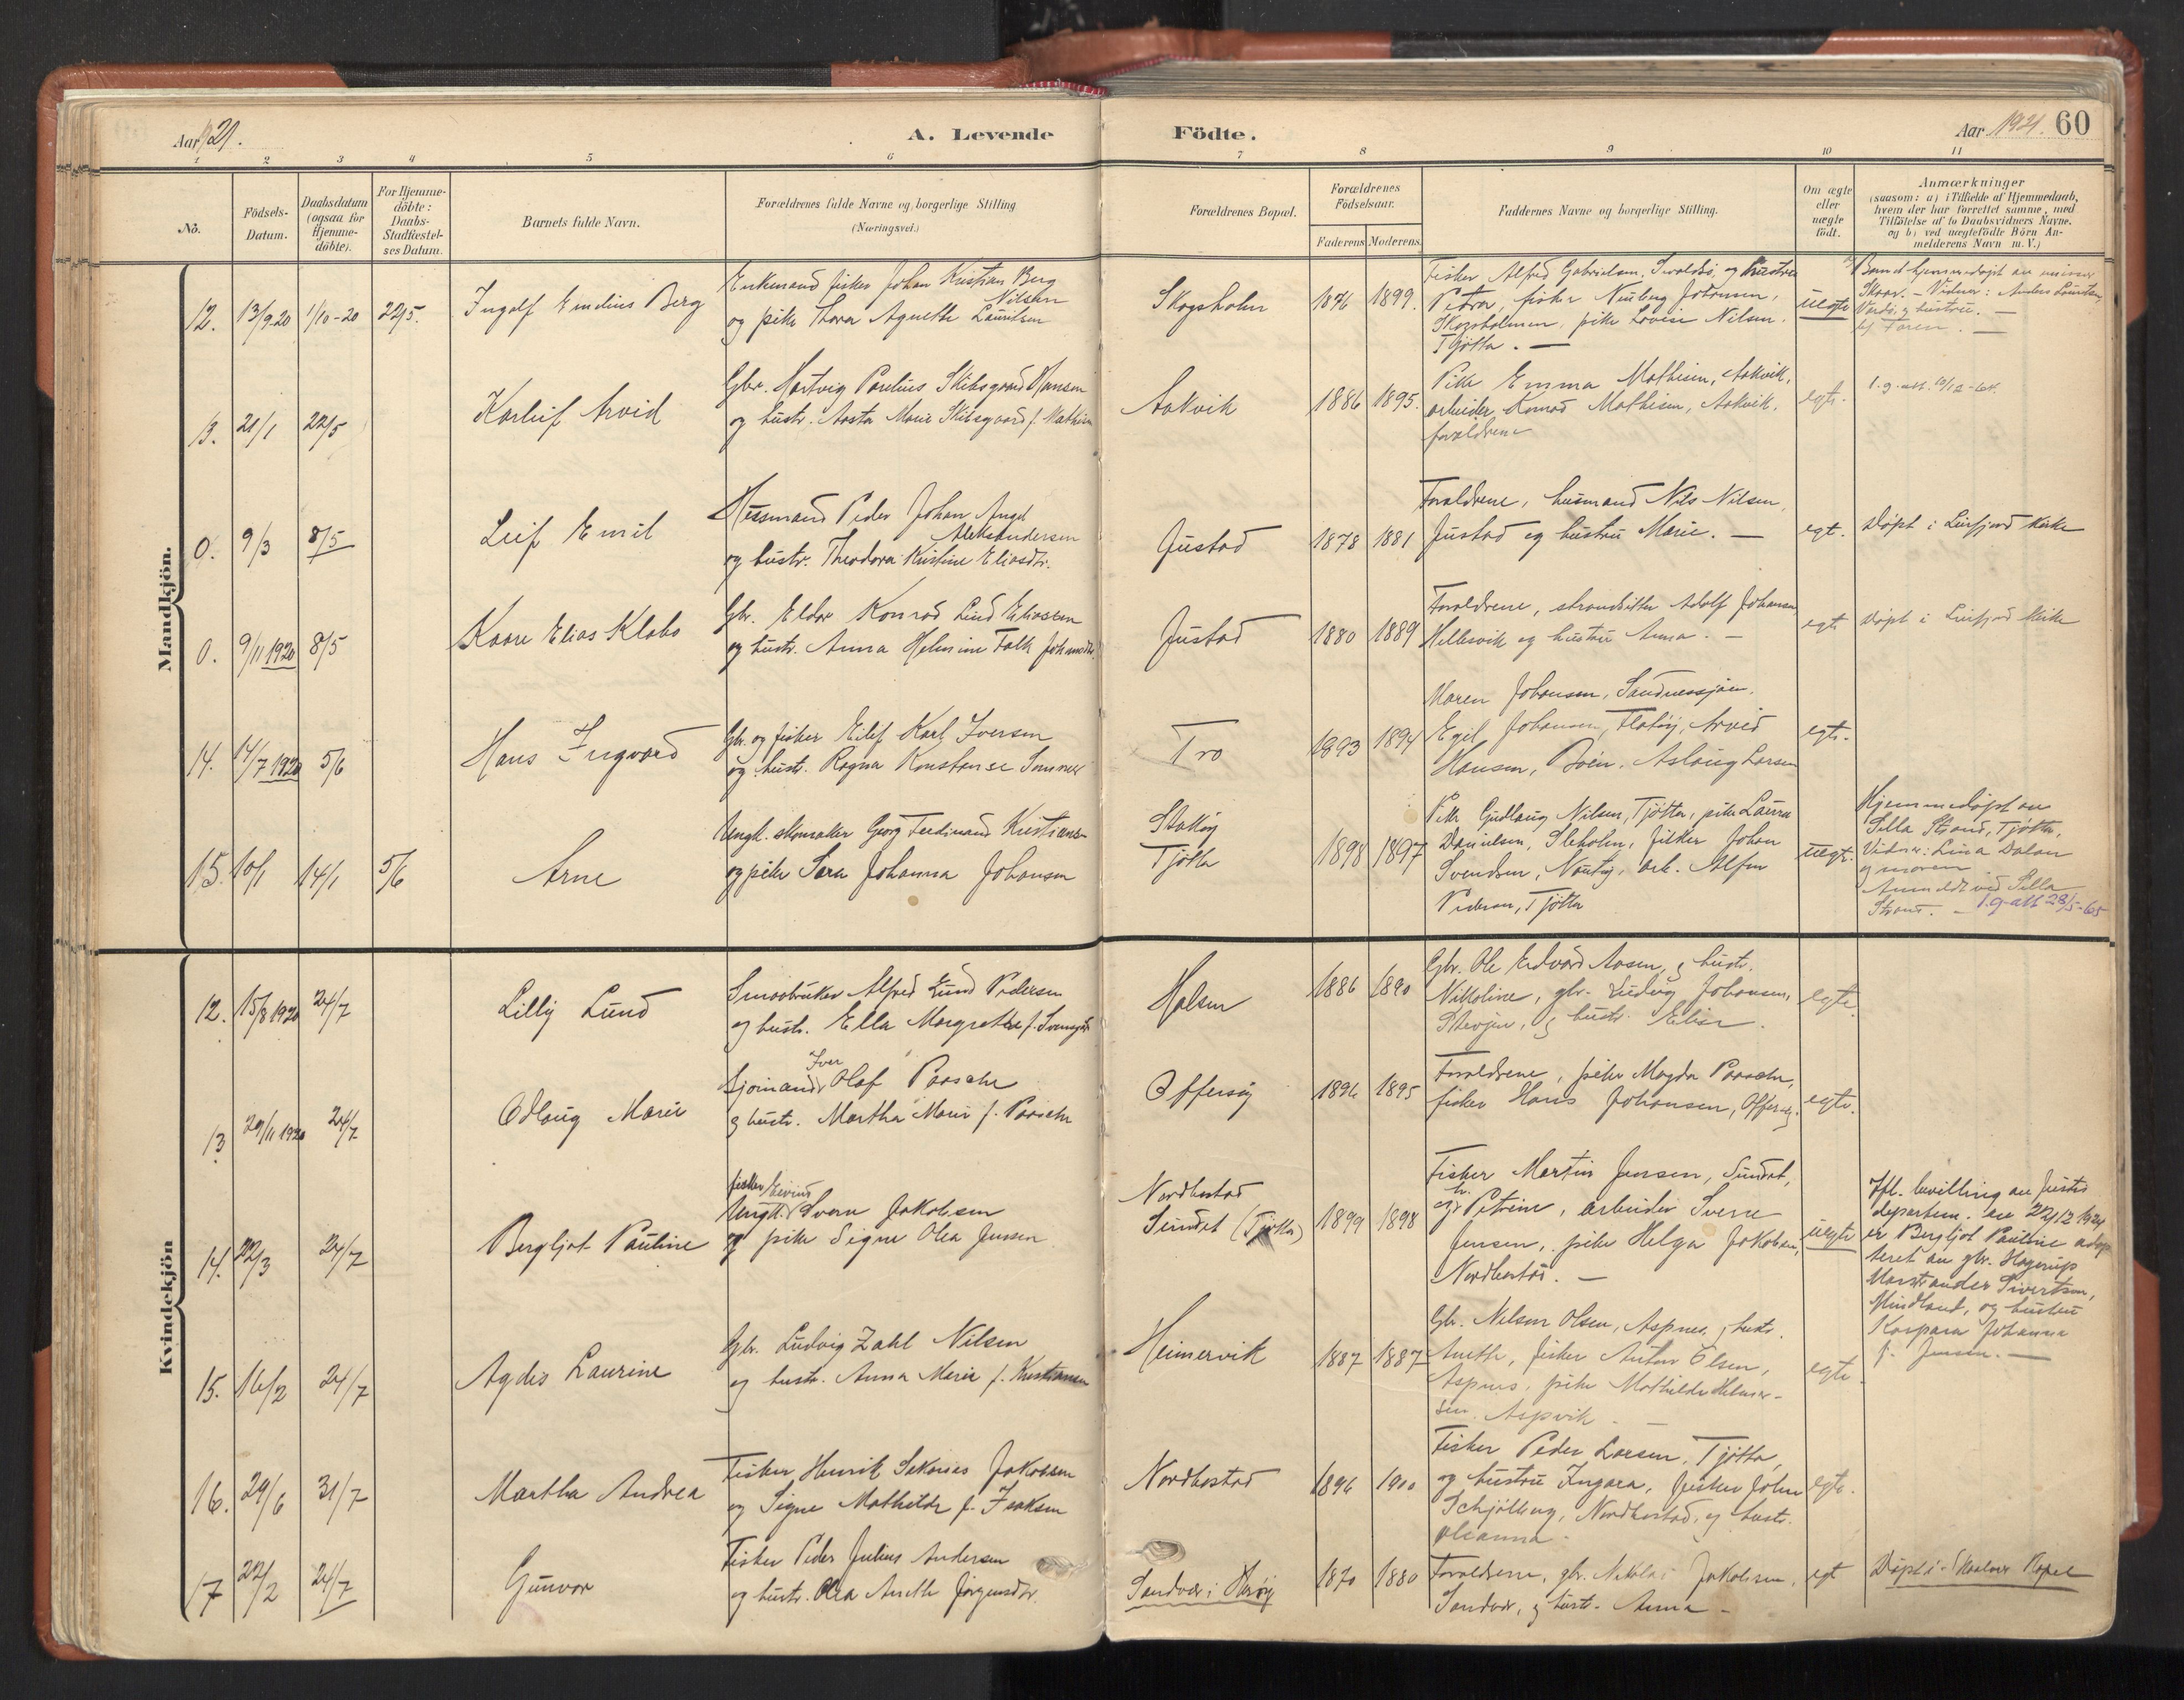 Aar 1921.
A. Levende
Födte.
Aar 1921. 60
1 2 3 4 5 6 7 8 9 10 11
No.
Födsels-
Datum.
Daabsdatum
(ogsaa for
Hjemme-
döbte).
For Hjemme-
döbte:
Daabs-
Stadfæstel-
ses Datum.
Barnets fulde Navn.
Forældrenes fulde Navne og borgerlige Stilling
(Næringsvei.)
Forældrenes Bopæl.
Forældrenes
Födselsaar.
Faderens Moderens
Faddernes Navne og borgerlige Stilling.
Om ægte
eller
uægte
födt.
Anmærkninger
(saasom: a) i Tilfælde af Hjemmedaab,
hvem der har forrettet samme, med
Tilföielse af to Daabsvidners Navne.
og b) ved uægtefödte Börn An-
melderens Navn m. V.)
Mandkjön.
12. 13/9-20 1/10-20 22/5.
Ingolf Emelius Berg
Enkemand fisker Johan Kristian Berg
Nilsen
og pike Thora Agnethe Lauritsen
Skogsholm
1876 1899.
Fisker Alfred Gabrielsen, og hustru
Petra, fisker Johansen,
Skogsholmen, pike Lovise Nilsen.
Tjøtta. —
uegte
Skaar. — Vidner: Anders Lauritsen
og hustru. —
13. 21/1 22/5
Karleif Arvid
Gbr. Hartvig Parelius Skibsgaard Hansen
og hustr. Aasta Marie Skibsgaard f. Mathisen
Aakvik
1886 1895.
Pike Emma Mathisen, Aakvik,
arbeider Konrad Mathisen, Aakvik.
forældrene
egte.
l. g. att. 10/12-64.
0. 9/3 8/5
Leif Emil
Husmand Peder Johan Angel
Aleksandersen
og hustr. Theodora Kristine Eliasdtr.
Justad
1878 1881
Forældrene, husmand Nils Nilsen,
Justad og hustru Marie. —
egt.
Døpt i Leirfjord kirke
0. 9/11 1920 8/5
Kaare Elias Klobo
Gbr. Eldor Konrad Lund Eliassen
og hustr. Anna Helmine Falk Johansdtr.
Justad
1880 1889
Forældrene, strandsitter Adolf Johansen
Hellesvik og hustru Anna. —
egte
Døpt i Leirfjord kirke
14. 14/7 1920 5/6
Hans Ingvard
Gbr. og fisker Eilif Karl Iversen
og hustr. Ragna Konstanse
Tro
1893 1894
Maren Johansen, Sandnessjøen.
Egil Johansen, Flatøy, Arvid
Hansen, Aslaug Larsen
egte.
15. 10/1 14/1 5/6
Arne
Ungk. skomaker Georg Ferdinand Kristiansen
og pike Sara Johanna Johansen
Stokkøy
Tjøtta
1898 1897
Pike Gudlaug Nilsen, Tjøtta, pike Laura
Danielsen, fisker Johan
Svendsen, arb. Alfon
Pedersen, Tjøtta
uegte.
Hjemmedøpt av
Silla Strand, Tjøtta,
Vidner: Lina Dalan
og moren.
Anmeldt ved Silla
Strand. — l.g. att 28/5-65
Kvindekjön
12. 15/8 1920 24/7
Lilly Lund
Smaabruker Alfred Lund Pedersen
og hustr. Ella Margrethe f.
Holsen
1886 1890
Gbr. Ole Edvard Aasen, og hustr.
Nikoline, gbr. Ludvig Johansen,
og hustr. Elise.
egte.
13 29/11 1920 24/7
Odlaug Marie
Iver
Sjømand Olaf Paasche
og hustr. Martha Marie f. Paasche
Offersøy
1896 1895
Forældrene, pike Magda Paasche,
fisker Hans Johansen, Offersøy.
egte.
14. 22/3 24/7
Bergljot Pauline
fisker Eivind
Ungk. Svern Jakobsen
og pike Signe Olea Jensen
Nordbostad
Sundet (Tjøtta)
1899 1898
Fisker Martin Jensen, Sundet,
og h. Petrine, arbeider Sverre
Jensen, pike Helga Jakobsen,
Nordbostad. —
uegte
Ifl. bevilling av Justis
departem. av 22/12 1924
er Bergljot Pauline adop
teret av gbr. Hagerup
Marstrander Sivertsen,
Mindland, og hustru
Kaspara Johanna
f. Jensen. —
15. 16/2 24/7
Agdis Laurine
Gbr. Ludvig Zahl Nilsen
og hustr. Anna Marie f. Kristiansen
Heimervik
1887 1887
Gbr. Nelsen Olsen, Aspnes, og hustr.
Anette, fisker Anton Olsen,
Aspnes, pike Mathilde Helmer-
sen Aspvik. —
egte.
16. 29/6 31/7
Martha Andrea
Fisker Henrik Sakarias Jakobsen
og Signe Mathilde f. Isaksen
Nordbostad
1896 1900
Fisker Peder Larsen, Tjøtta,
og hustru Ingara, fisker Johan
Schjølberg, Nordbostad, og hustr.
Oleanna.
egte.
17 22/2 24/7
Gunvor
Fisker Peder Julius Andersen
og hustr. Olea Anette Jørgensdtr.
Sandvær i Herøy
1870 1880
Forældrene, gbr. Nikolai Jakobsen,
Sandvær, og hustr. Anna —
egt
Døpt i Skaalvær Kapel